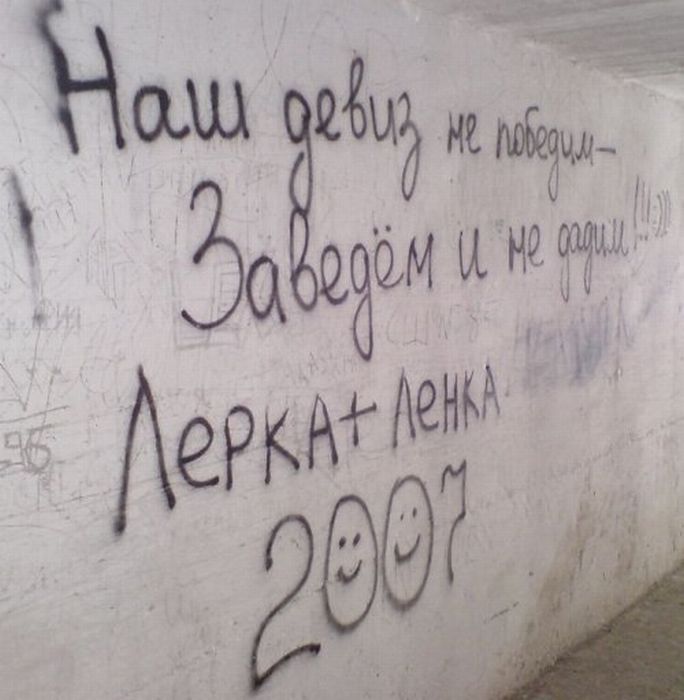 Наш девиз не победим–
Заведём и не дадим!!!:)))
Лерка+Ленка
2007
96